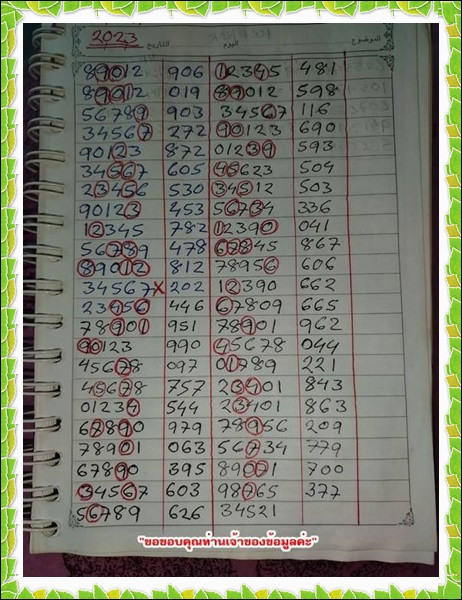 2023 التاريخ اليوم الموضوع
89012 906 12345 481
89012 019 89012 598
56789 903 34567 116
34567 272 90123 690
90123 872 01239 593
34567 605 45623 504
23456 530 34512 503
90123 453 56734 336
12345 782 12390 041
56789 478 67845 867
89012 812 78956 606
34567x 202 12390 662
23456 446 67809 665
78901 951 78901 962
90123 990 45678 044
45678 097 01789 221
45678 757 23401 843
01234 544 23401 863
67890 979 78956 209
78901 063 56734 779
67890 395 89001 700
34567 603 98765 377
56789 626 34521
"ขอขอบคุณท่านเจ้าของข้อมูลค่ะ"